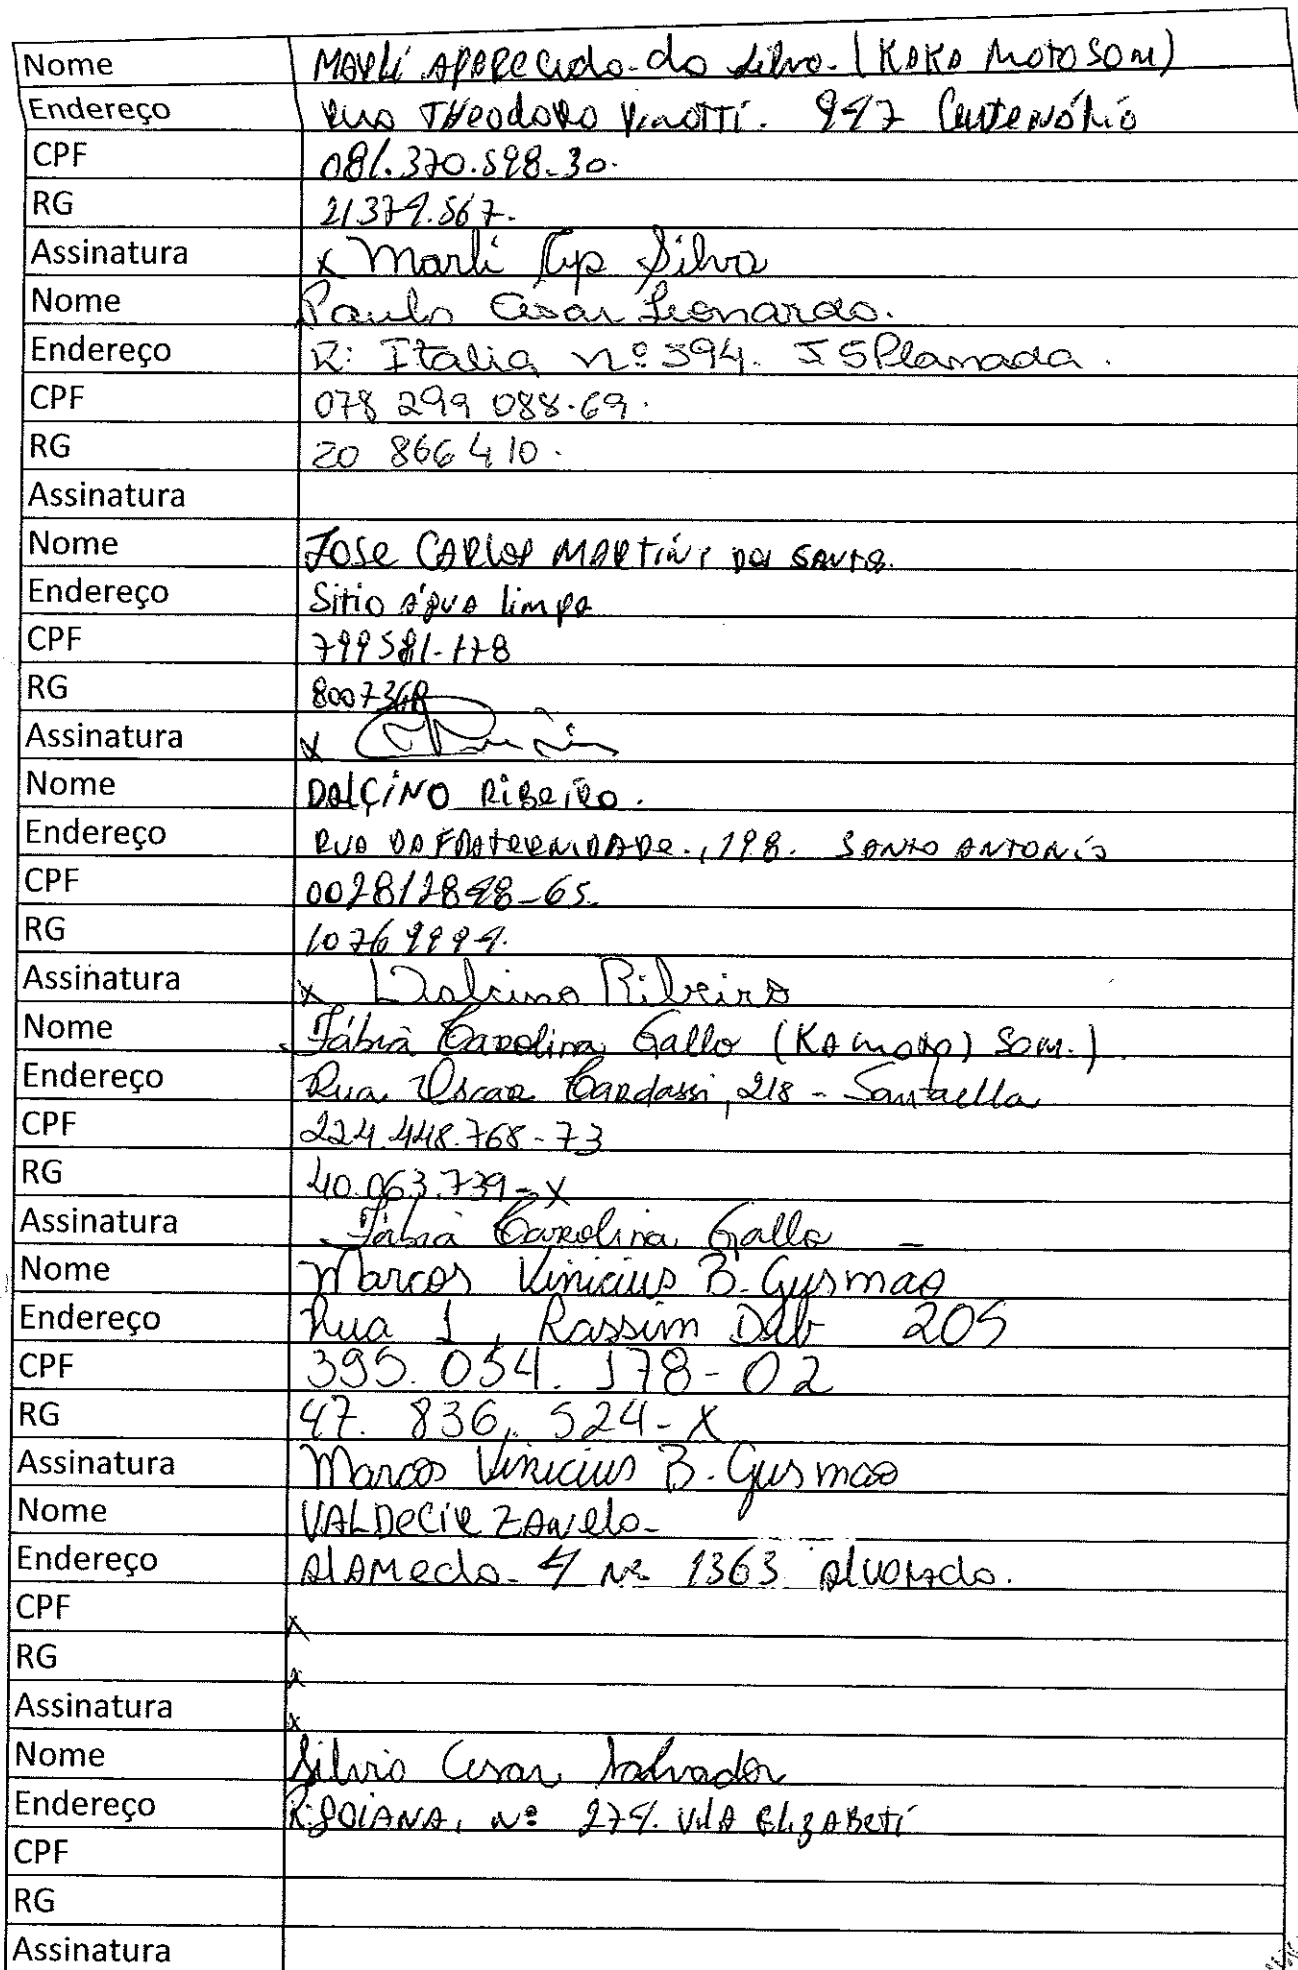 Nome MARLi APARECIDA da Silva. (KAKA MOTO SOM)
Endereço RUA THEODORO 947 CENTENÁRIO
CPF 081.370.598-30.
RG 21379.567.
Assinatura x Marli Ap Silva
Nome Paulo Cesar Leonardo.
Endereço R: Italia nº 594. J SPlanada.
CPF 078 299 088-69.
RG 20 866 410.
Assinatura
Nome JOSE CARLOS MARTINS DOS SANTOS.
Endereço Sitio água limpa
CPF 799581-178
RG
Assinatura x
Nome DALÇINO RIBEIRO.
Endereço RUA DA FRATERNIDADE., 198. SANTO ANTONIO
CPF
RG
Assinatura x Dalcino Ribeiro
Nome Fábia Carolina Gallo (KA moto) som.)
Endereço Rua Oscar Cardassi, 218 - Santaella
CPF 224.448.768-73
RG 40.063.739-X
Assinatura Fábia Carolina Gallo
Nome Marcos Vinicius B. Gusmao
Endereço Rua 1, Rassim Dib 205
CPF 395.054.178-02
RG 47. 836. 524-X
Assinatura Marcos Vinicius B. Gusmao
Nome VALDECIR ZANELO-
Endereço ALAMEDA 4 Nº 1363 ALVORADA.
CPF x
RG x
Assinatura x
Nome Silvio Cesar Salvador
Endereço R: GOIANA, Nº 274. VILA ELIZABETI
CPF
RG
Assinatura